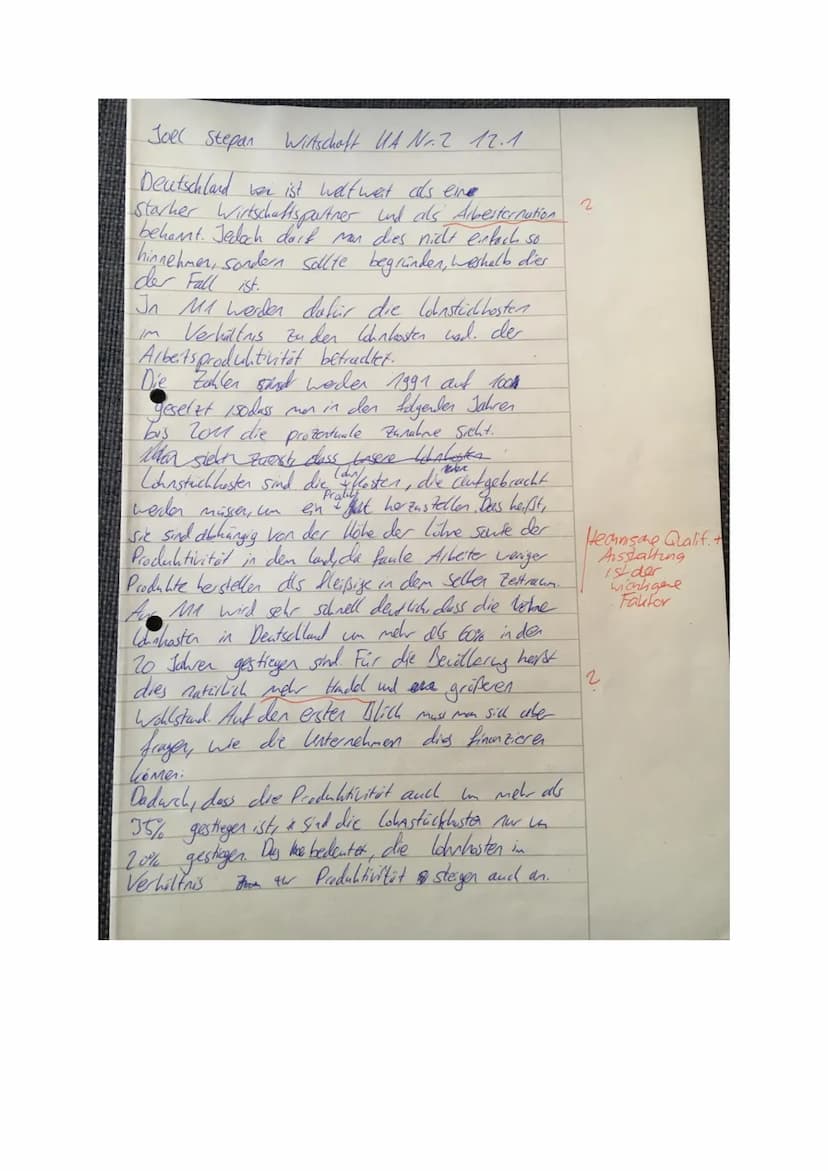 Joel Stepan Wirtschaft UA Nr. 2 12.1
Deutschland ist weltweit als eine
starker Wirtschaftspartner und als Arbeiternation
bekannt. Jedoch darf man dies nicht einfach so
hinnehmen, sondern sollte begründen, weshalb dies
der Fall ist.
In M1 werden dafür die Lohnstückkosten
im Verhältnis zu den Lohnkosten und der
Arbeitsproduktivität betrachtet.
Die Zahlen werden 1991 auf 100
gesetzt, sodass man in den folgenden Jahren
bis 2011 die prozentuale Zunahme sieht.
Lohnstückkosten sind die Kosten, die aufgebracht
werden müssen, um ein Produkt herzustellen. Das heißt,
sie sind abhängig von der Höhe der Löhne sowie der
Produktivität in dem Land, da faule Arbeiter weniger
Produkte herstellen als fleißige in dem selben Zeitraum.
Aus M1 wird sehr schnell deutlich, dass die
Lohnkosten in Deutschland um mehr als 60% in den
20 Jahren gestiegen sind. Für die Bevölkerung heißt
dies natürlich mehr Handel und größeren
Wohlstand. Auf den ersten Blick muss man sich aber
fragen, wie die Unternehmen dies finanzieren
können.
Dadurch, dass die Produktivität auch um mehr als
35% gestiegen ist, sind die Lohnstückkosten nur um
20% gestiegen. Das bedeutet, die Lohnkosten im
Verhältnis zur Produktivität steigen auch an.
?
technische Qualif. +
Ausstattung
ist der
wichtigere
Faktor
?